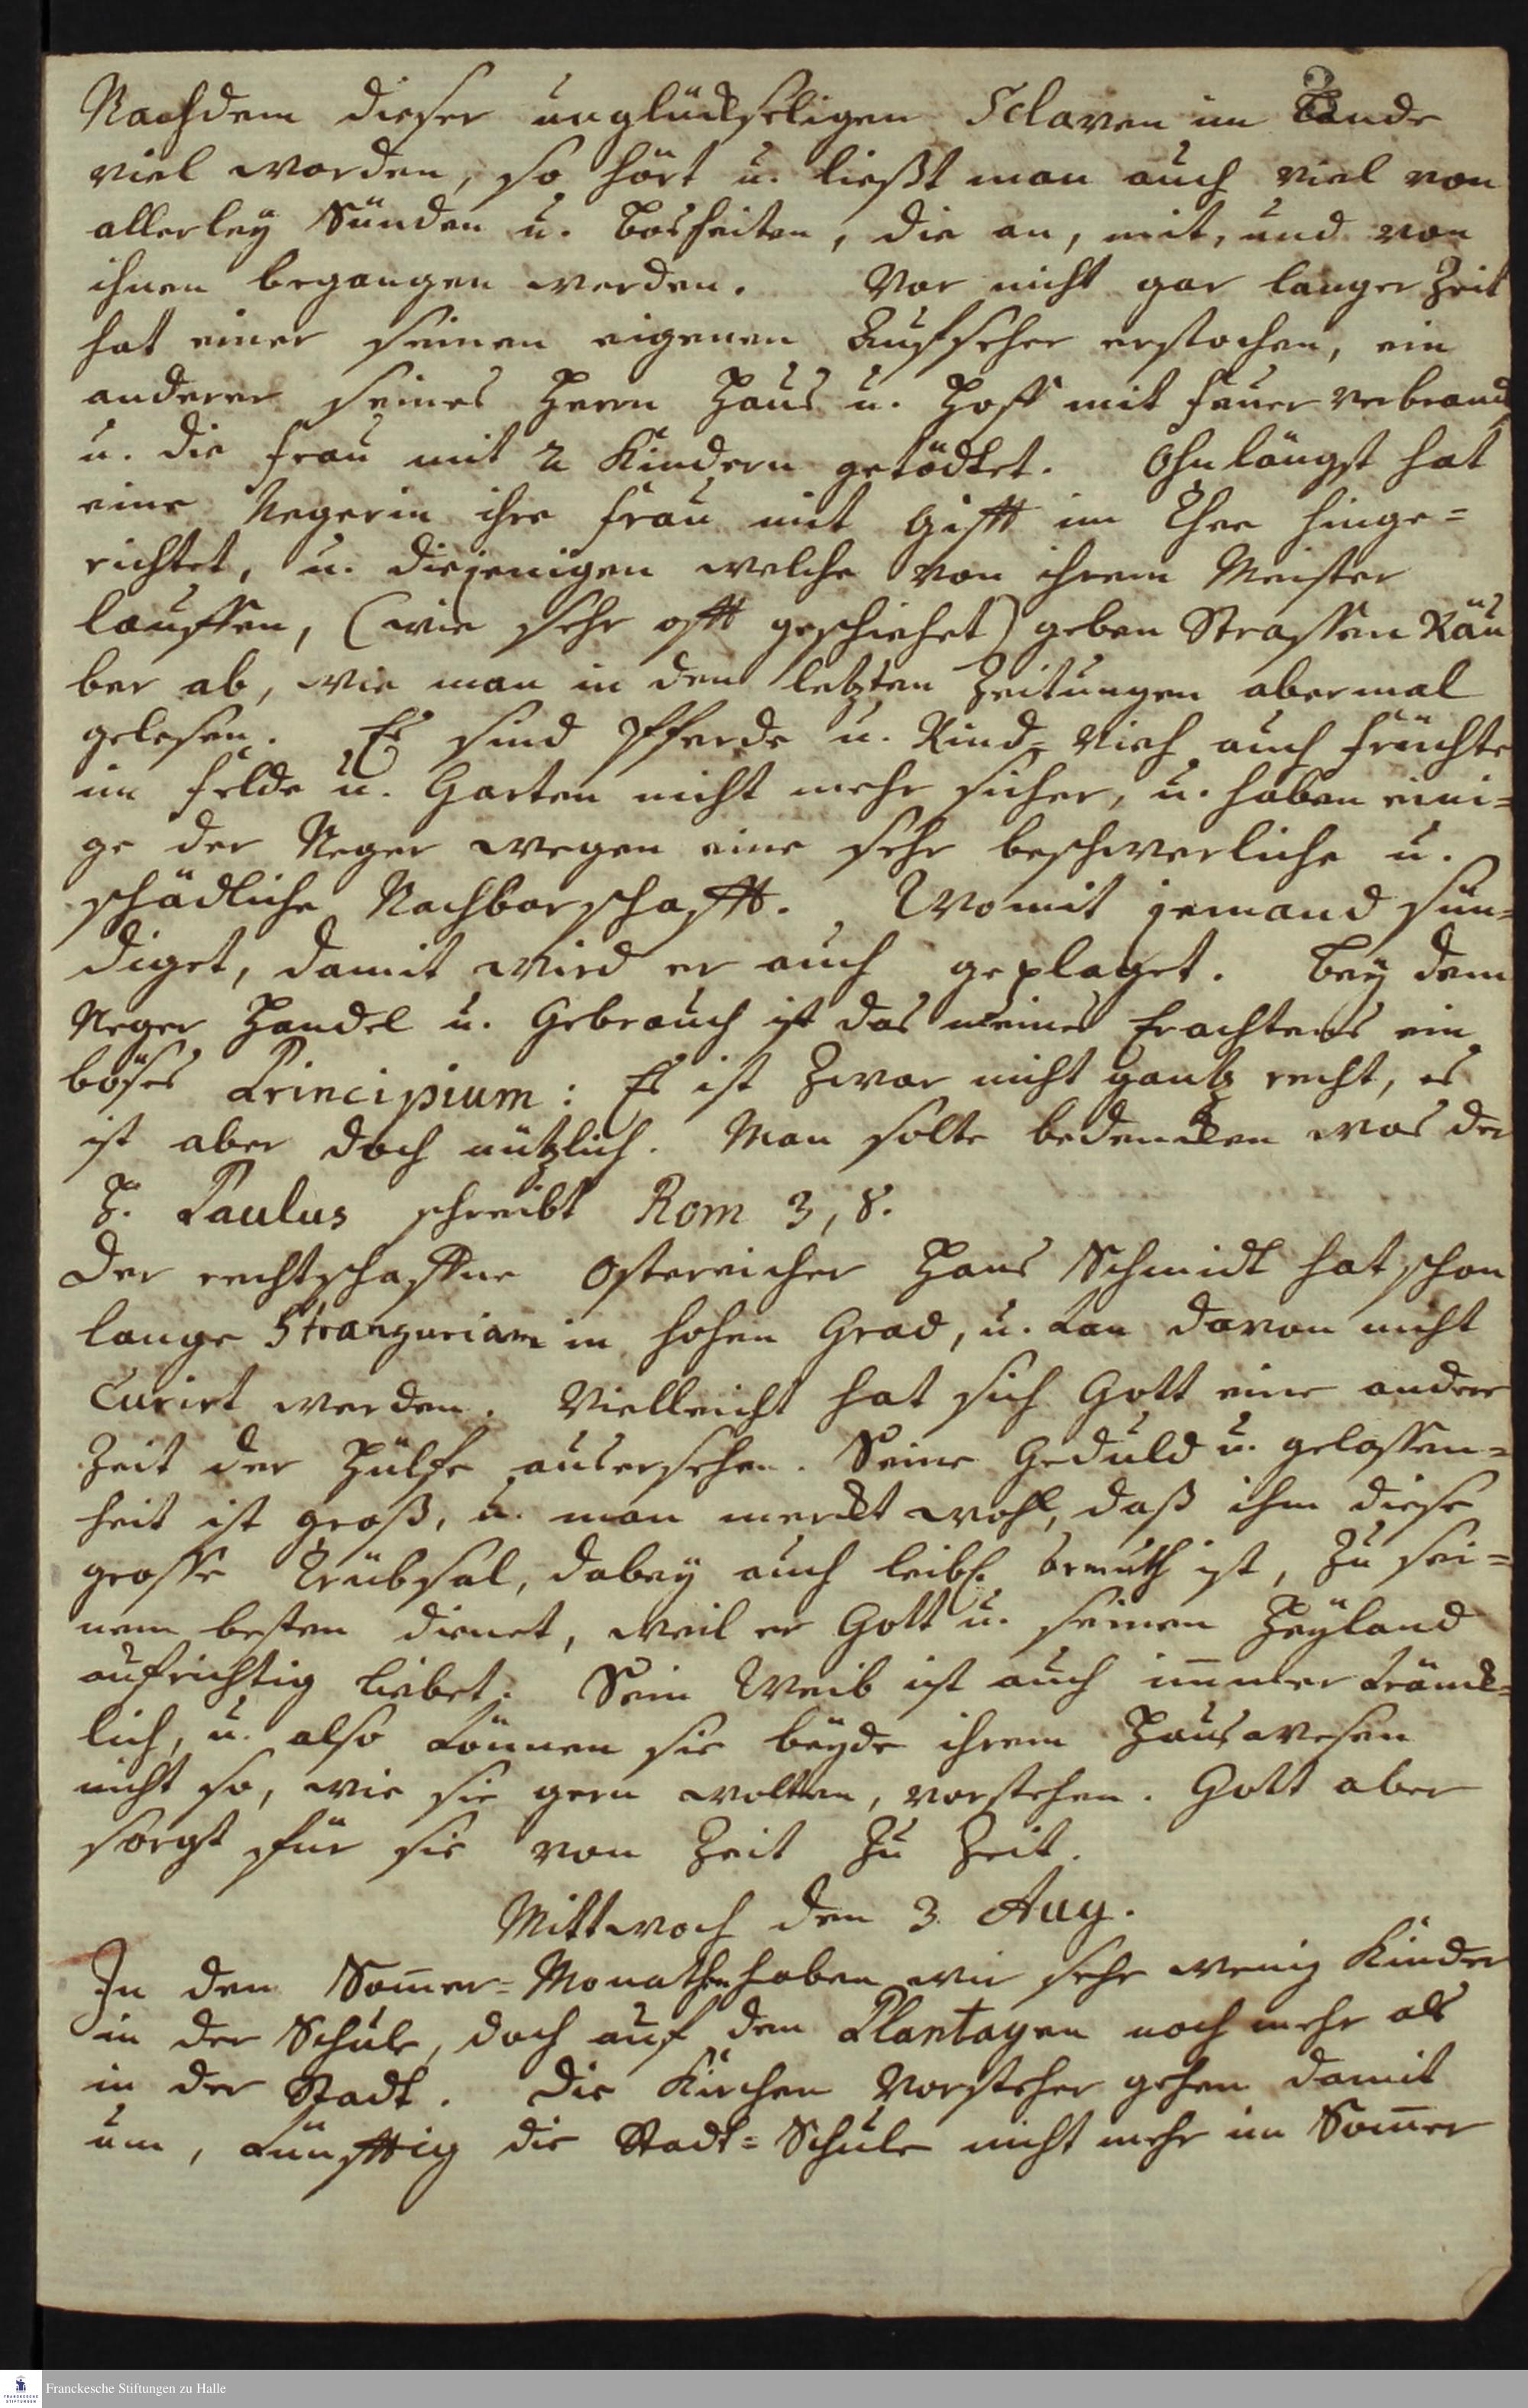 Nachdem dieser unglückseligen Sclaven im Lande
viel worden, so hört u. ließt man auch viel von
allerley Sünden u. Bosheiten, die an, mit, und von
ihnen begangen werden. Vor nicht gar langer Zeit
hat einer seinen eigenen Aufseher erstochen, ein
anderer seines Herrn Haus u. Hoff mit feuer verbrand
u. die Frau mit 2 Kindern getödtet. Ohnlängst hat
eine Negerin ihre Frau mit Gifft im Thee hinge=
richtet, u. diejenigen welche von ihrem Meister
lauffen, (wie sehr offt geschiehet) geben Strassen Räu
ber ab, wie man in den letzten Zeitungen abermal
gelesen. Es sind Pferde u. Rind-Vieh auch früchte
im felde u. Garten nicht mehr sicher, u. haben eini=
ge der Neger wegen eine sehr beschwerliche u.
schädliche Nachbarschafft. Womit jemand sün=
diget, damit wird er auch geplaget. Bey dem
Neger Handel u. Gebrauch ist das meines Erachtens ein
böses Principium: Es ist zwar nicht gantz recht, es
ist aber doch nützlich. Man solte bedencken was der
H. Paulus schreibt Rom 3, 8.
Der rechtschaffne Ostereicher Hans Schmidt hat schon
lange Stranguriam in hohen Grad, u. kan davon nicht
Curirt werden. Vielleicht hat sich Gott eine andere
Zeit der Hülfe ausersehen. Seine Geduld u. gelassen=
heit ist groß, u. man merckt wohl, daß ihm diese
grosse Trübsal, dabey auch leibl. armuth ist, zu sei=
nem besten dienet, weil er Gott u. seinen Heyland
aufrichtig liebet. Sein Weib ist auch immer kränck=
lich, u. also können sie beyde ihrem Hauswesen
nicht so, wie sie gern wolten, vorstehen. Gott aber
sorgt für sie von Zeit zu Zeit.
Mittwoch den 3. Aug.
In den Som̄er=Monathen haben wir sehr wenig Kinder
in der Schule, doch auf den Plantagen noch mehr als
in der Stadt. Die Kirchen Vorsteher gehen damit
um, künfftig die Stadt=Schule nicht mehr im Som̄er
Franckesche Stiftungen zu Halle